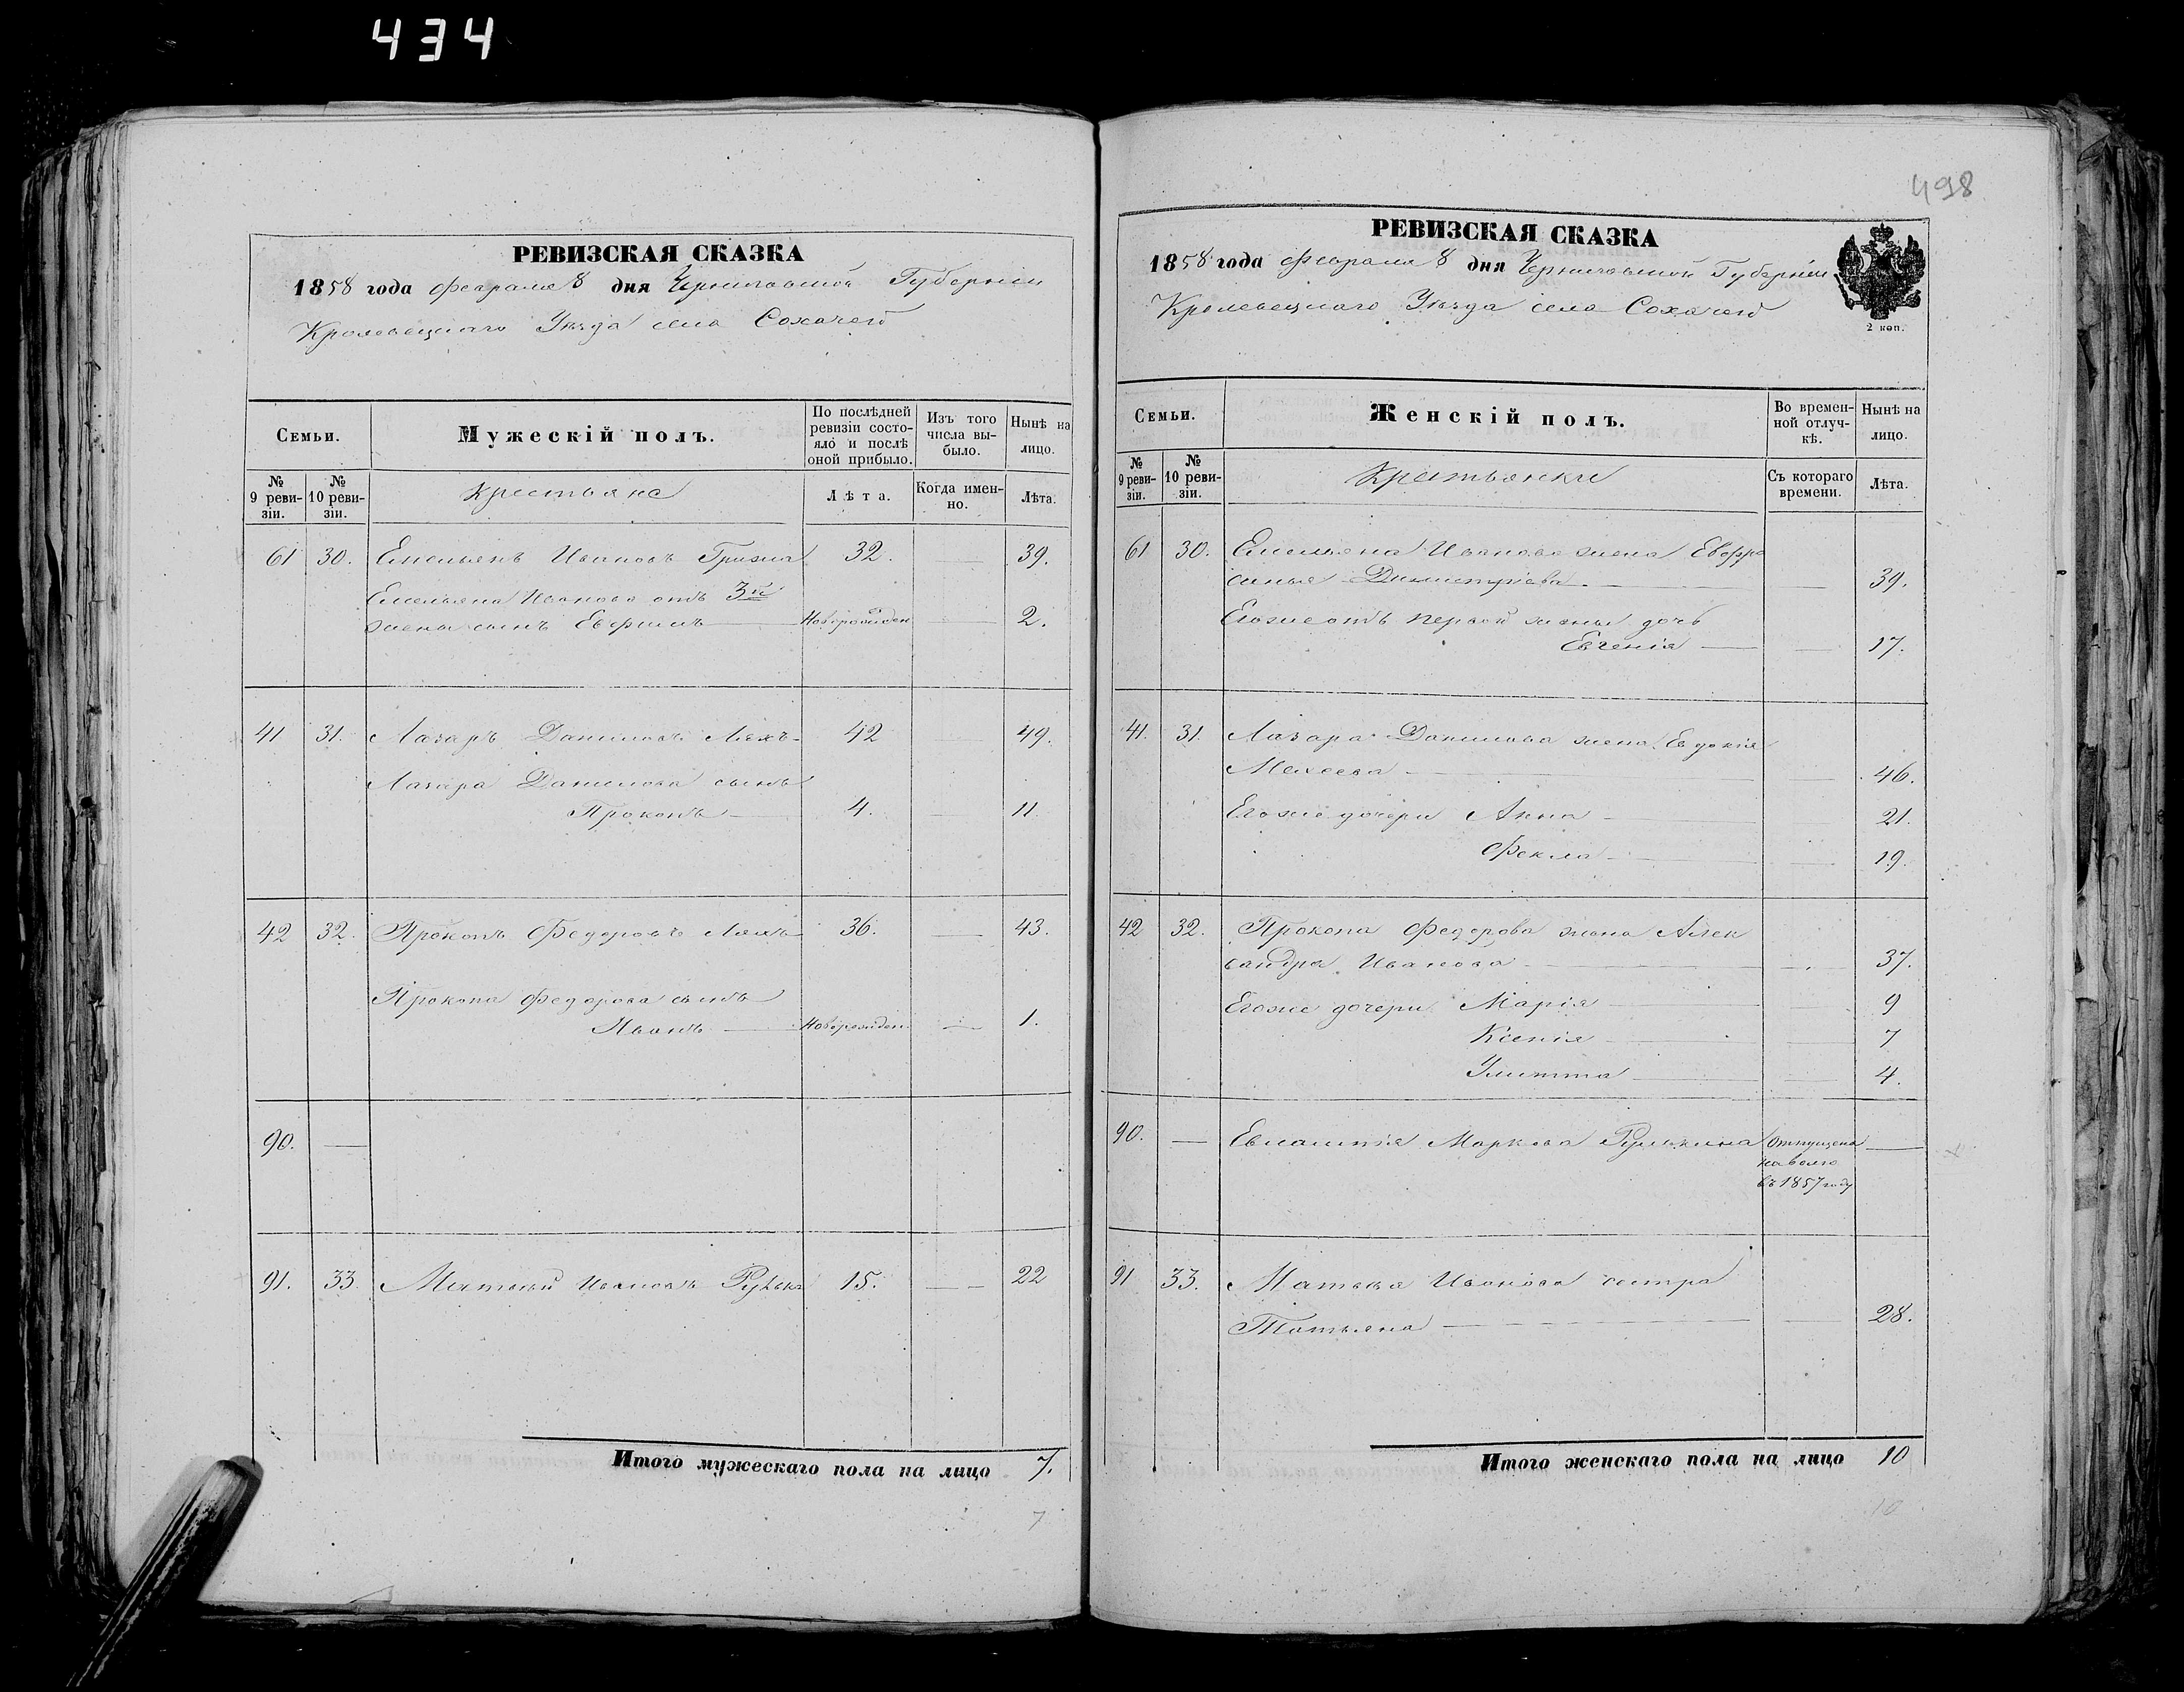 434
РЕВИЗСКАЯ СКАЗКА
1858 года февраля 8 дня Черниговской Губерніи
Кролевецкаго Уѣзда села Сохачей
Семьи.
Мужескій полъ.
По послѣдней ревизіи состояло и послѣ оной прибыло.
Изъ того числа выбыло.
Нынѣ на лицо.
№ 9 ревизіи.
№ 10 ревизіи.
Крестьяне
Лѣта.
Когда именно.
Лѣта.
61 30. Емельянъ Ивановъ 32. — 39.
Емельяна Иванова отъ 3й
жены сынъ Евфимъ — Новорожден — 2.
41 31. Лазарь Даниловъ Ляхъ 42 — 49.
Лазаря Данилова сынъ
Прокопъ — 4. — 11.
42 32. Прокопъ Федоровъ Ляхъ 36. — 43.
Прокопа Федорова сынъ
Иванъ — Новорожден — 1.
90. —
91. 33. Матвѣй Ивановъ 15. — 22
Итого мужескаго пола на лицо 7.
7
498
РЕВИЗСКАЯ СКАЗКА
1858 года февраля 8 дня Черниговской Губерніи
Кролевецкаго Уѣзда села Сохачей
2 коп.
Семьи.
Женскій полъ.
Во временной отлучкѣ.
Нынѣ на лицо.
№ 9 ревизіи.
№ 10 ревизіи.
Крестьянки
Съ котораго времени.
Лѣта.
61 30. Емельяна Иванова жена Евфро
синья Димитріева — — 39.
Егоже отъ первой жены дочь
Евгенія — — 17.
41. 31. Лазаря Данилова жена Евдокія
Мехеева — — 46.
Егоже дочери Анна — 21.
Фекла — — 19.
42 32. Прокопа Федорова жена Алек
сандра Иванова — — 37.
Егоже дочери Марія — — 9
Ксенія — — 7
Улитта — — 4.
90. — Евлампія Маркова Отпущена —
на волю
въ 1857 году
91 33. Матвѣя Иванова сестра
Татьяна — — 28.
Итого женскаго пола на лицо 10
10